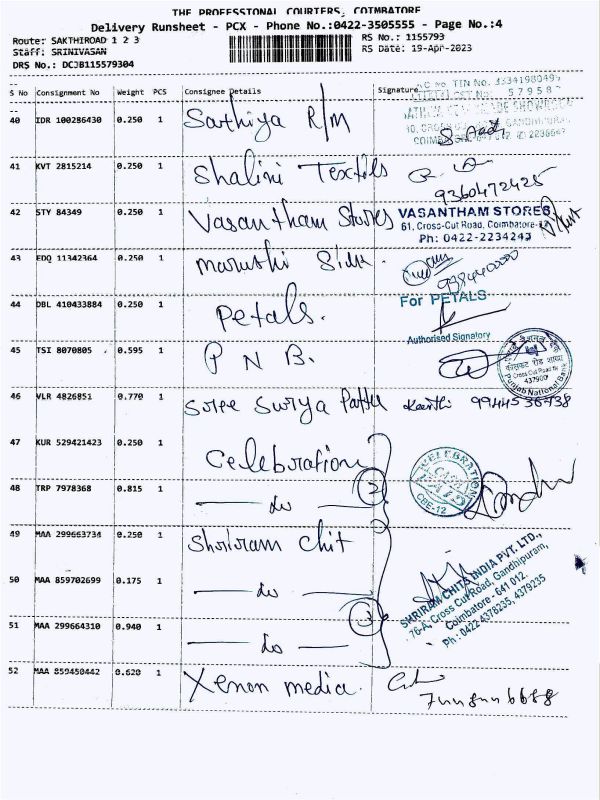 THE PROFESSIONAL COURIERS, COIMBATORE
Delivery Runsheet - PCX - Phone No.:0422-3505555 - Page No.:4
Route: SAKTHIROAD 1 2 3 RS No.: 1155793
Staff: SRINIVASAN RS Date: 19-Apr-2023
DRS No.: DCJB115579304
S No Consignment No Weight PCS Consignee Details Signature
40 IDR 100286430 0.250 1 Sathiya R/M
41 KVT 2815214 0.250 1 Shalini Textils 9360472425
42 STY 84349 0.250 1 Vasantham Stores VASANTHAM STORES
61, Cross-Cut Road, Coimbatore-12
Ph: 0422-2234243
43 EDQ 11342364 0.250 1 Maruthi Silk.
44 DBL 410433884 0.250 1 Petals. For PETALS
Authorised Signatory
45 TSI 8070805 0.595 1 P N B. Cross Cut Road Br
Punjab National Bank
46 VLR 4826851 0.770 1 Sree Surya Pattu Keerthi 9944536738
47 KUR 529421423 0.250 1 Celebration CELEBRATION
CBE-12
48 TRP 7978368 0.815 1 — do — 2
49 MAA 299663734 0.250 1 Shriram Chit
50 MAA 859702699 0.175 1 — do —
SHRIRAM CHITS INDIA PVT. LTD.,
76-A, Cross Cut Road, Gandhipuram,
Coimbatore - 641 012.
Ph: 0422 4376235, 4379235
51 MAA 299664310 0.940 1 — do — 3
52 MAA 859450442 0.620 1 Xenon media.